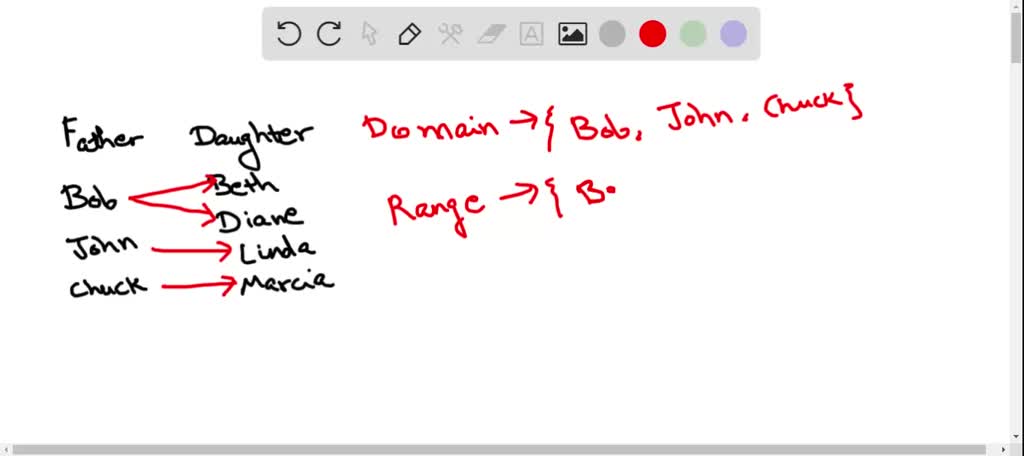 Father Daughter
Bob Beth
Diane
John Linda
chuck Marcia
Domain → { Bob, John, Chuck}
Range → { B